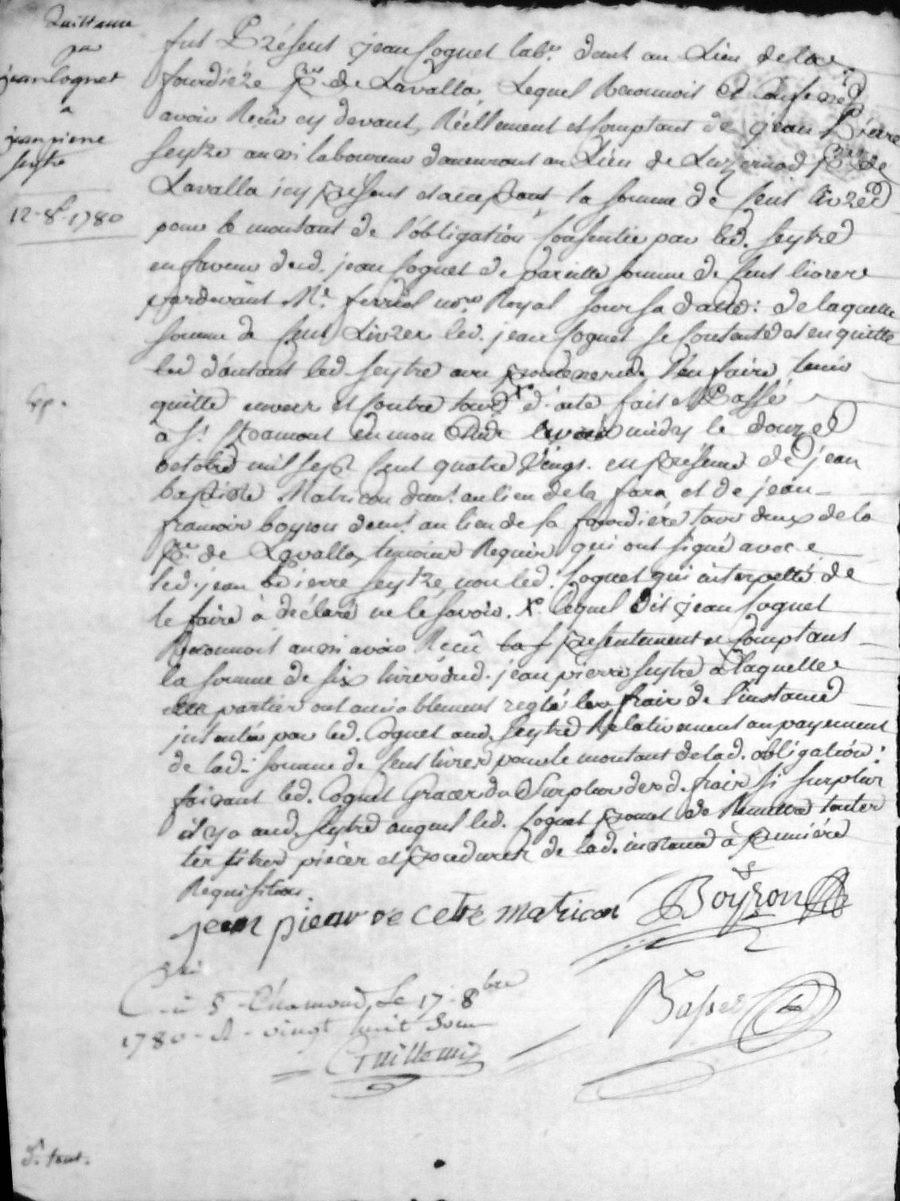 Quittance
par
jean Coguet
a
jean pierre
seytre
12. 8. 1780
fut Présent jean Coguet lab.r dem.t au Lieu de la
fourdiére p.sse de Lavalla, Lequel Reconnoit et Confesse
avoir Reçû cy devant, Réellement et Comptant de jean Pierre
Seytre aussi laboureur demeurant au Lieu de Luzernod p.sse de
Lavalla icy présent et acceptant la somme de Cent livres
pour le montant de l'obligation Consentie par led. Seytre
en faveur dud. jean Coguet de pareille somme de Cent livres
pardevant M.e ferriol no.re Royal sous sa datte: de laquelle
somme de Cent Livres led. jean Coguet se Contente et en quitte
led d'autant led. Seytre avec promesse de l'en faire tenir
quitte envers et Contre tous x d: acte fait et Passé
à S.t Chamont en mon Etude avant midy le douze
octobre mil sept Cent quatre Vingt. en présence de jean
baptiste Matricon dem.t au lieu de la fara et de jean
francois boyron dem.t au lieu de la fourdiére tous deux de la
p.sse de Lavalla, temoins Requis qui ont signé avec
led. jean Pierre Seytre, non led. Coguet qui interpellé de
le faire à déclaré ne le savoir. x lequel dit jean Coguet
Reconnoit aussi avoir Reçû la s présentement et Comptant
la somme de six livres dud. jean pierre seytre à laquelle
les partier ont amiablement reglé les frais de l'instance
intentée par led. Coguet aud. Seytre Relativement au payement
de lad. somme de Cent livres pour le montant de lad. obligation:
faisant led. Coguet Grace du Surplus desd. frais si surplus
il y a aud. Seytre auquel led. Coguet promet de Remettre toutes
les titres piéces et procedures de lad. instance à premiére
Requisition.
jean pierre cetre matricon Boyron
à S.t Chamond, le 17. 8bre
1780 R vingt huit sous
Guillemin